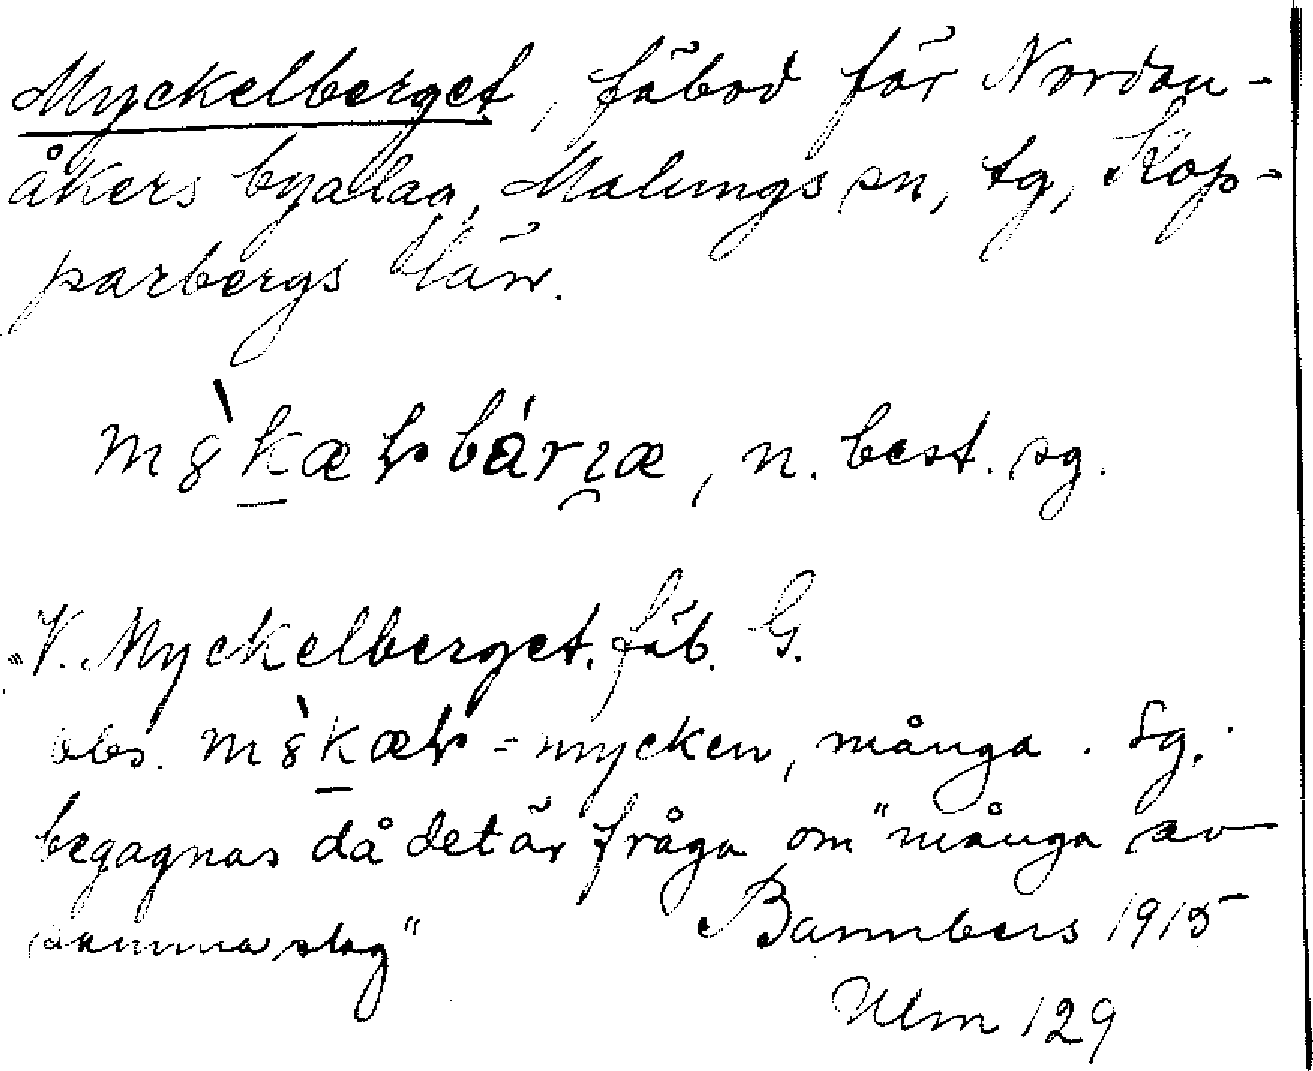 Myckelberget, fäbod för Nordan-
åkers byalag, Malungs sn, tg, Kop-
parbergs län.
n. best. sg.
V. Myckelberget. fäb. G.
obs. = mycken, många. Sg.
begagnas då det är fråga om "många av
samma slag" Bannbers 1915
Ulm 129